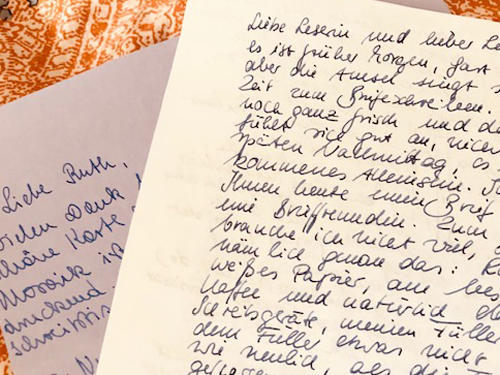 Liebe Leserin und lieber Le
es ist früher Morgen, fast
aber die Amsel singt s
Zeit zum Briefeschreiben.
noch ganz frisch und d
fühlt sich gut an, nicht
späten Nachmittag, es
kommenes Alleinsein.
Ihnen heute einen Brief
eine Brieffreundin. Zum
brauche ich nicht viel,
nämlich genau das:
weißes Papier, am be
Kaffee und natürlich
Schreibgeräte, meinen Füller
dem Füller etwas nicht
wie neulich, als die
Liebe Ruth,
vielen Dank
schöne Karte
Mosaik ist